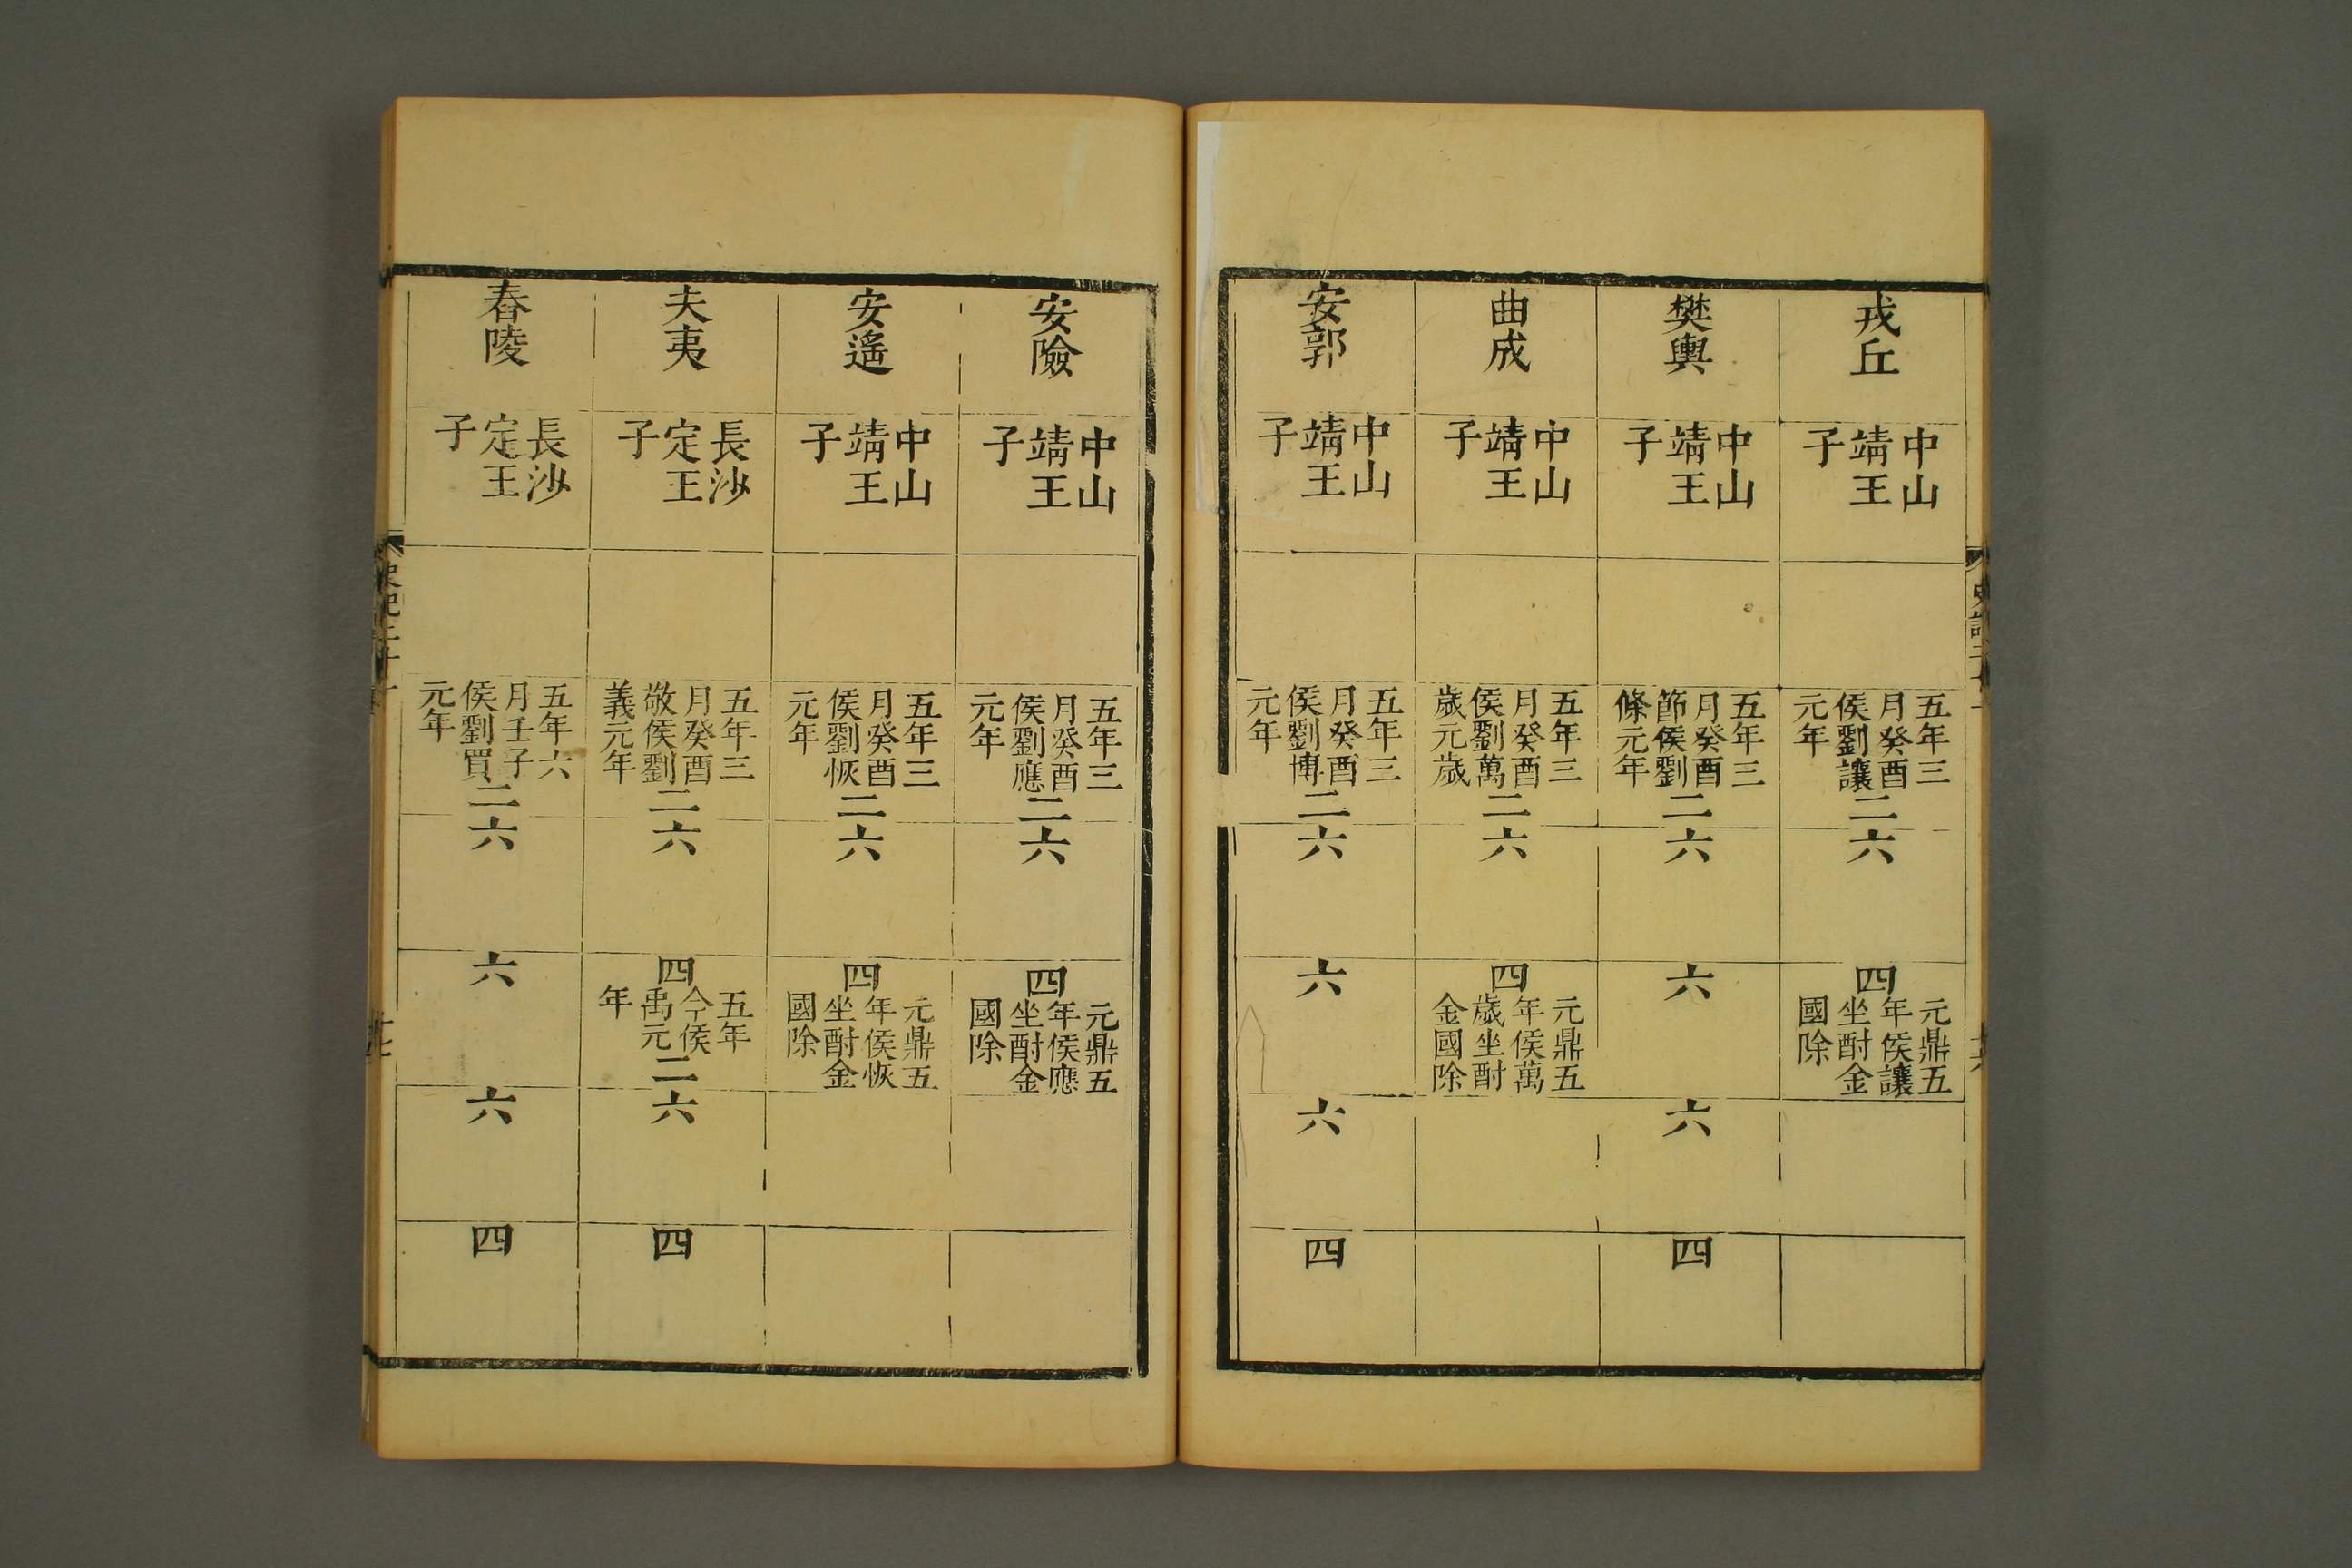 戎丘
中山
靖王
子
五年三
月癸酉
侯劉讓
元年
二
六
四
元鼎五
年侯讓
坐酎金
國除
樊輿
中山
靖王
子
五年三
月癸酉
節侯劉
條元年
二
六
六
六
四
曲成
中山
靖王
子
五年三
月癸酉
侯劉萬
歲元歲
二
六
四
元鼎五
年侯萬
歲坐酎
金國除
安郭
中山
靖王
子
五年三
月癸酉
侯劉博
元年
二
六
六
六
四
安險
中山
靖王
子
五年三
月癸酉
侯劉應
元年
二
六
四
元鼎五
年侯應
坐酎金
國除
安遙
中山
靖王
子
五年三
月癸酉
侯劉恢
元年
二
六
四
元鼎五
年侯恢
坐酎金
國除
夫夷
長沙
定王
子
五年三
月癸酉
敬侯劉
義元年
二
六
四
五年
今侯
禹元
年
二
六
四
舂陵
長沙
定王
子
五年六
月壬子
侯劉買
元年
二
六
六
六
四